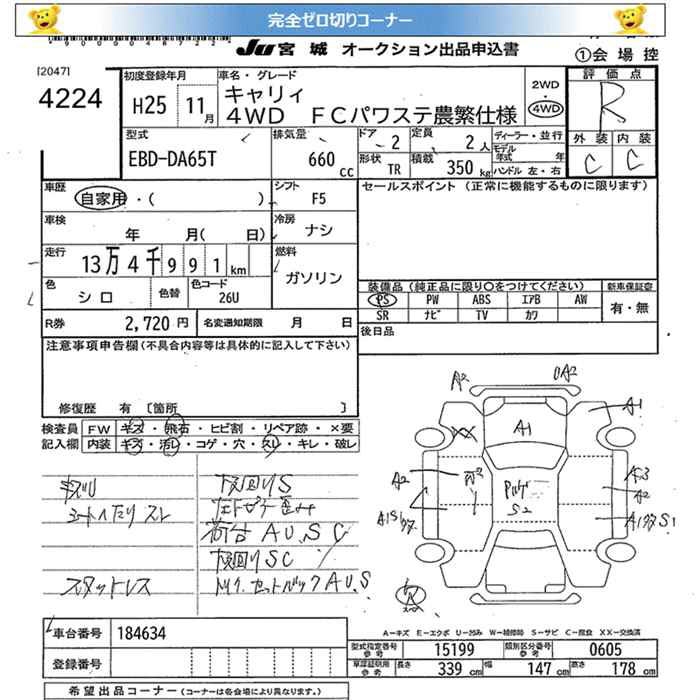 完全ゼロ切りコーナー
JU 宮城 オークション出品申込書
①会場控
[2047]
4224
初度登録年月
H25 11月
車名・グレード
キャリィ
4WD FCパワステ農繁仕様
2WD
・
4WD
評価点
R
外装 内装
C C
型式
EBD-DA65T
排気量
660 cc
ドア 2
定員 2人
形状 TR
積載 350 kg
ディーラー・並行
モデル年式 年
ハンドル 左・右
車歴
自家用・( )
シフト F5
セールスポイント (正常に機能するものに限ります)
車検
年 月( 日)
冷房 ナシ
走行
13万4千991km
燃料
ガソリン
色
シロ
色替
色コード
26U
装備品 (純正品に限り〇をつけてください)
新車保証書
PS PW ABS エアB AW
SR ナビ TV カワ
有・無
R券 2,720円
名変通知期限 月 日
後日品
注意事項申告欄(不具合内容等は具体的に記入して下さい)
修復歴 有 [箇所 ]
検査員 FW キズ・飛石・ヒビ割・リペア跡・×要
記入欄 内装 キズ・汚レ・コゲ・穴・スレ・キレ・破レ
下回りS
シートヘタリ スレ
荷台AU.SC
下回りSC
スタッドレス
A2
UA2
A1
A1
XX
A2
A2
S2
車台番号 184634
登録番号
A-キズ E-エクボ U-凹み W-補修跡 S-サビ C-腐食 XX-交換済
型式指定番号 参考 15199
類別区分番号 参考 0605
車庫証明用 参考 長さ 339cm 幅 147cm 高さ 178cm
希望出品コーナー (コーナーは各会場により異なります。)